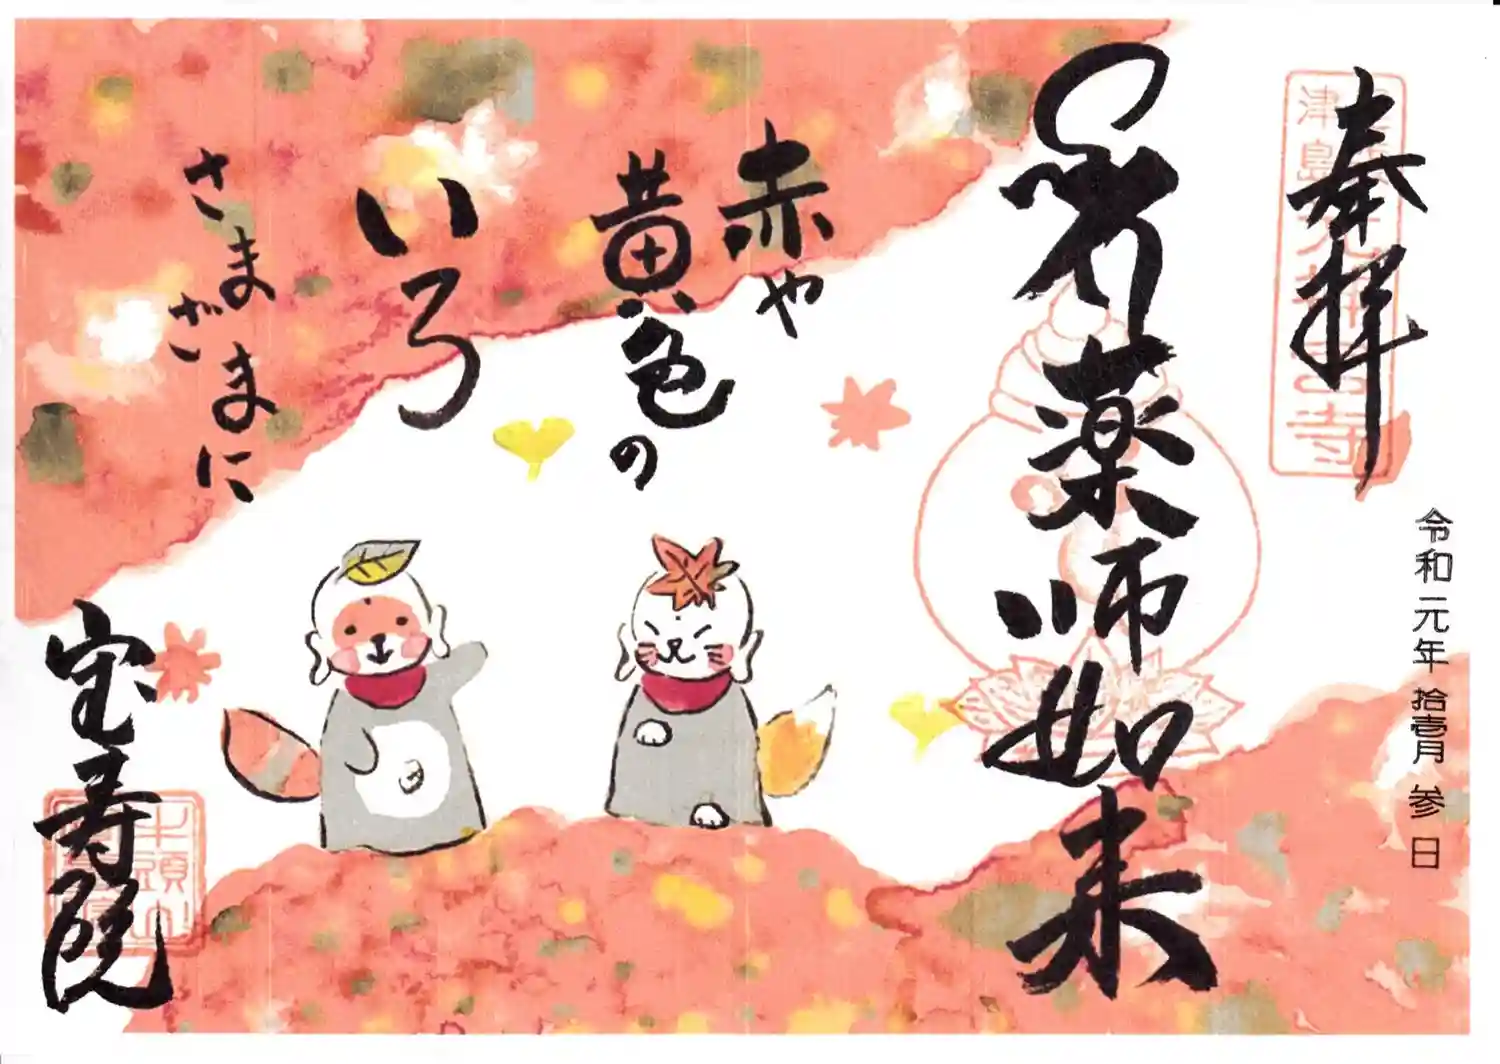 奉拝
令和元年拾壱月参日
薬師如来
赤や
黄色の
いろ
さまざまに
宝寿院